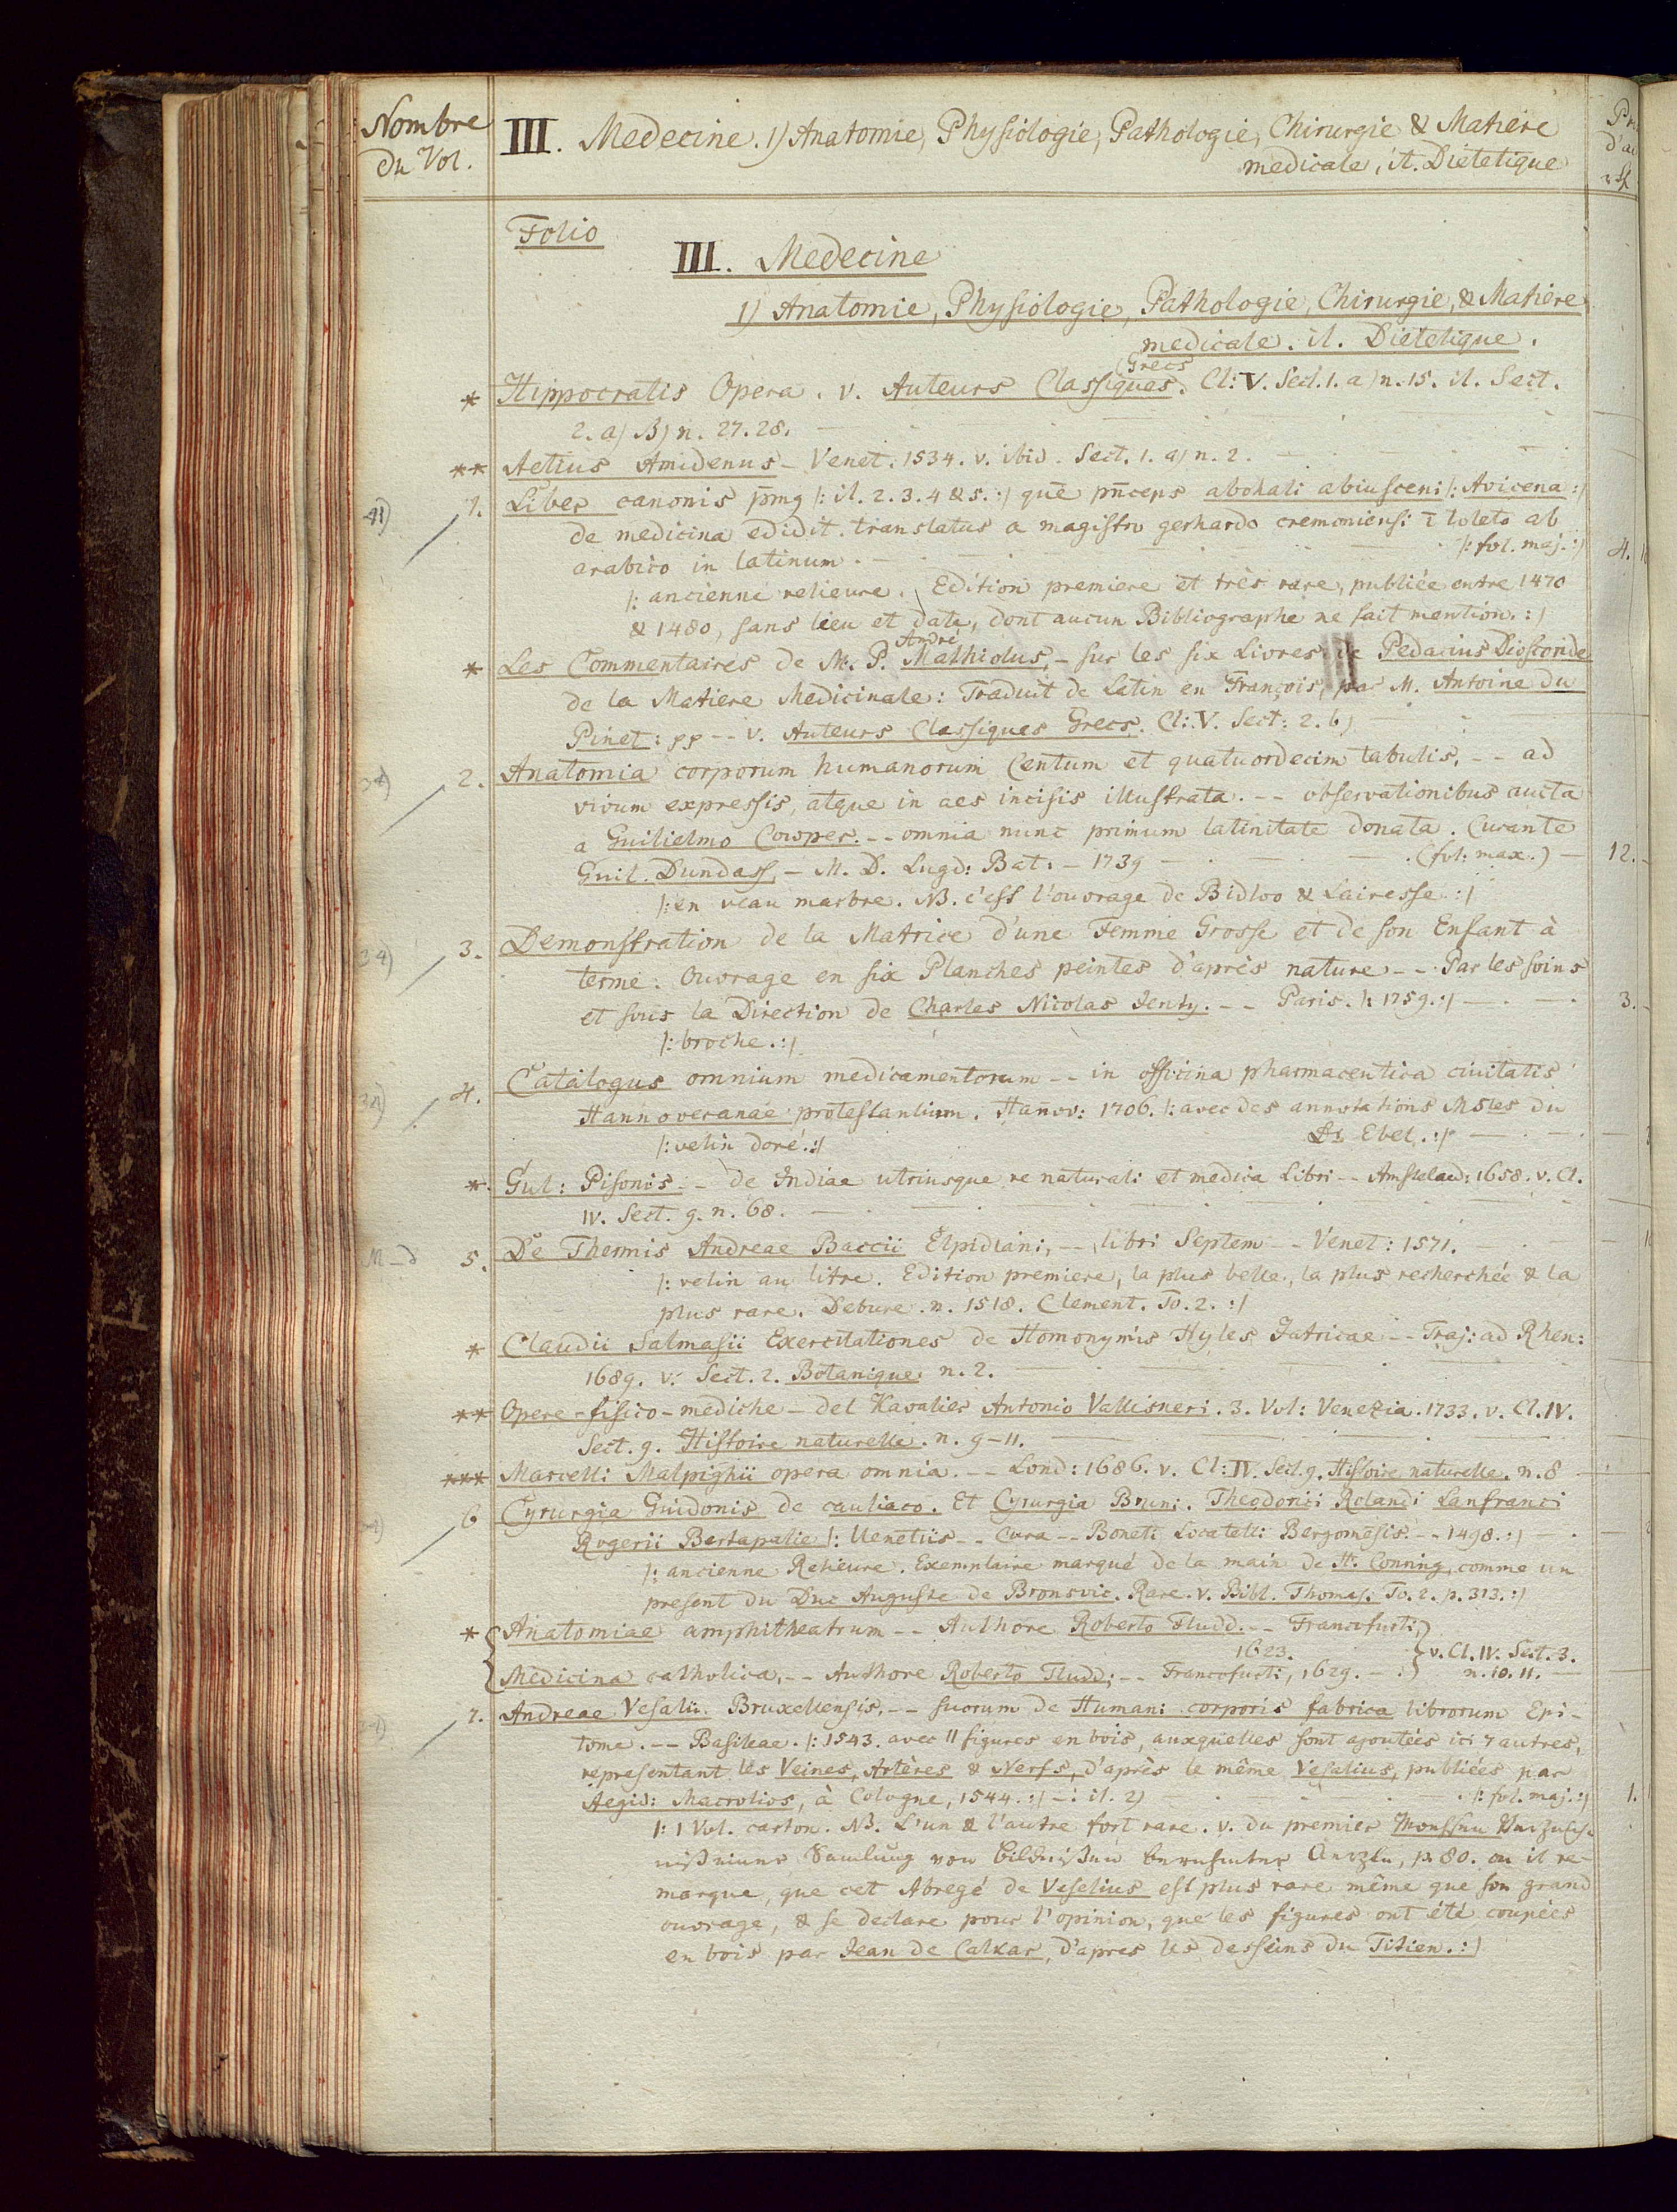 Nombre
du Vol.
III. Medecine. 1) Anatomie, Physiologie, Pathologie, Chirurgie & Matiere
medicale, it. Dietetique
Folio
III. Medecine
1) Anatomie, Physiologie, Pathologie, Chirurgie, & Matiere
medicale. it. Dietetique.
Grecs
* Hippocratis Opera. v. Auteurs Classiques. Cl: V. Sect. 1. a) n. 15. it. Sect.
2. a) B) n. 27. 28.
** Aetius Amidenus – Venet. 1534. v. ibid. Sect. 1. a) n. 2.
1. Liber canonis p̄mg /: it. 2. 3. 4 & 5. :/ quē pn̄ceps abohali abiusceni /: Avicena :/
de medicina edidit. translatus a magistro gerhardo cremoniensi ī toleto ab
arabico in latinum. /: fol. maj. :/ 4.
/: ancienne relieure. Edition premiere et très rare, publiée entre 1470
& 1480, sans lieu et date, dont aucun Bibliographe ne fait mention. :/
André
* Les Commentaires de M. P. Mathiolus, – sur les six Livres de Pedacius Dioscoride
de la Matiere Medicinale: Traduit de Latin en François, par M. Antoine du
Pinet: pp -- v. Auteurs Classiques Grecs. Cl: V. Sect: 2. b)
34) 2. Anatomia corporum humanorum Centum et quatuordecim tabulis, -- ad
vivum expressis, atque in aes incisis illustrata. -- observationibus aucta
a Guilielmo Cowper. -- omnia nunc primum latinitate donata. Curante
Guil. Dundass, – M. D. Lugd: Bat: – 1739 (fol: max.) – 12.
/: en veau marbre. NB. c'est l'ouvrage de Bidloo & Lairesse :/
34) 3. Demonstration de la Matrice d'une Femme Grosse et de son Enfant à
terme. Ouvrage en six Planches peintes d'après nature -- Par les soins
et sous la Direction de Charles Nicolas Jenty. -- Paris. /: 1759. :/ 3.
/: broche. :/
34) 4. Catalogus omnium medicamentorum -- in officina pharmaceutica civitatis
Hannoveranae protestantium. Hañov: 1706. /: avec des annotations Mstes du
/: velin doré. :/ Dr Ebel. :/
* Gul: Pisonis – de Indiae utriusque re naturali et medica Libri -- Amstelaed: 1658. v. Cl.
IV. Sect. 9. n. 68.
5. De Thermis Andreae Baccii Elpidiani, -- libri Septem -- Venet: 1571.
/: velin au litre. Edition premiere, la plus belle, la plus recherchée & la
plus rare. Debure. n. 1518. Clement. To. 2. :/
* Claudii Salmasii Exercitationes de Homonymis Hyles Jatricae -- Traj: ad Rhen:
1689. v. Sect. 2. Botanique n. 2.
** Opere – fisico – mediche – del Kavalier Antonio Vallisneri. 3. Vol: Venezia. 1733. v. Cl. IV.
Sect. 9. Histoire naturelle. n. 9–11.
*** Marcelli Malpighii opera omnia. -- Lond: 1686. v. Cl: IV. Sect. 9. Histoire naturelle. n. 8
6 Cyrurgia Guidonis de cauliaco. Et Cyrurgia Bruni. Theodorici Rolandi Lanfranci
Rogerii Bertapalie /: Uenetiis -- Cura -- Boneti Locatelli Bergomēsis -- 1498. :/
/: ancienne Relieure. Exemplaire marqué de la main de H. Conning, comme un
present du Duc Auguste de Bronsvic. Rare. v. Bibl. Thomas. To. 2. p. 313. :/
* Anatomiae amphitheatrum -- Authore Roberto Fludd. -- Francofurti,
1623. v. Cl. IV. Sect. 3.
Medicina catholica, -- Authore Roberto Fludd; -- Francofurti, 1629. – n. 10. 11.
7. Andreae Vesalii Bruxellensis, -- suorum de Humani corporis fabrica librorum Epi-
tome. -- Basileae. /: 1543. avec 11 figures en bois, auxquelles sont ajoutées ici 7 autres,
representant les Veines, Artères & Nerfs, d'après le même Vesalius, publiées par
Aegid: Macrolios, à Cologne, 1544. :/ – it. 2) /: fol. maj. :/ 1.
/: 1 Vol. carton. NB. L'un & l'autre fort rare. v. du premier Moehsen Verzeich-
niß einer Samlung von Bildnißen berühmter Aerzte, p. 80. ou il re-
marque, que cet Abregé de Veselius est plus rare même que son grand
ouvrage, & se declare pour l'opinion, que les figures ont été coupées
en bois par Jean de Calkar, d'apres les desseins du Titien. :/